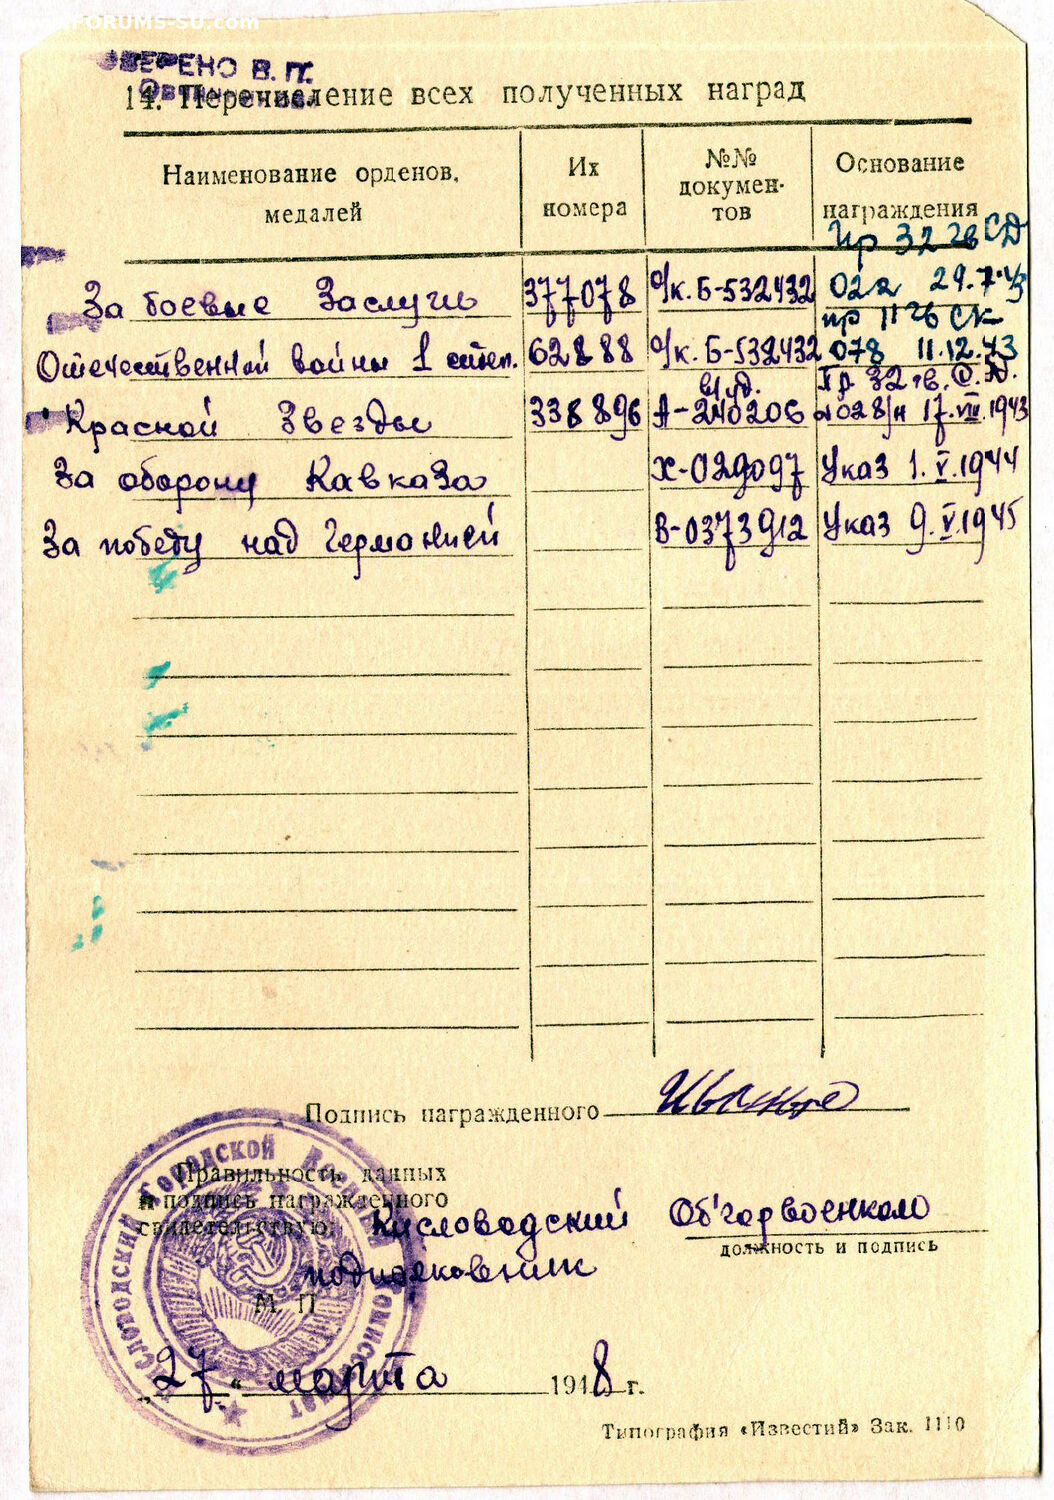 FORUMS-SU.com
ВЕРЕНО В. П.
14. Перечисление всех полученных наград
Наименование орденов, медалей
Их номера
№№ докумен-тов
Основание награждения
За боевые Заслуги 377078 о/к. Б-532432 Пр 32 гв СД 02 29.7.43
Отечественной войны 1 степ. 62888 о/к. Б-532432 пр 11 гв СК 078 11.12.43
Красной Звезды 338896 А-240206 Пр 32 гв. С. Д. 028/н 17.VIII.1943
За оборону Кавказа Х-029097 Указ 1.V.1944
За победу над Германией В-0373912 Указ 9.V.1945
Подпись награжденного
Правильность данных
и подпись награжденного
свидетельствую: Кисловодский Об'горвоенком
должность и подпись
подполковник
М. П.
„27“ марта 1948 г.
Кисловодский Городской Военный Комиссариат
Типография «Известий» Зак. 1110